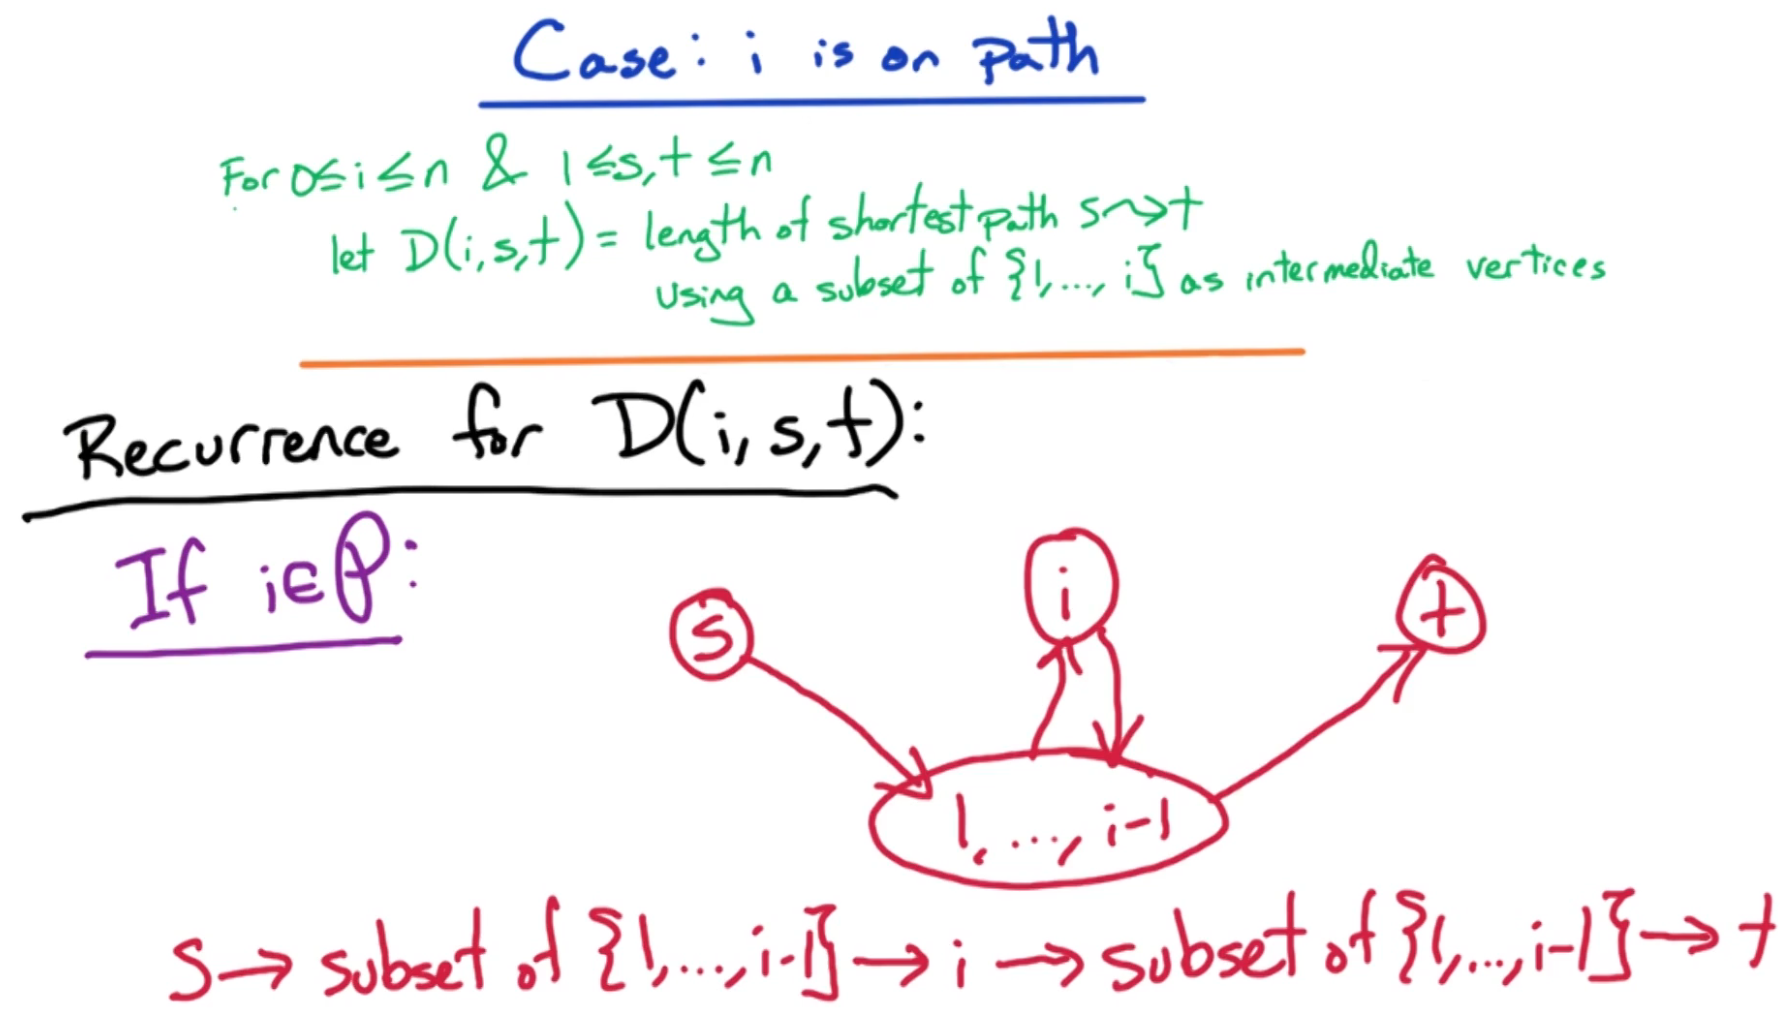 Case: i is on path
For 0≤i≤n & 1≤s,t≤n
let D(i,s,t) = length of shortest path s⇝t
using a subset of {1,...,i} as intermediate vertices
Recurrence for D(i,s,t):
If i∈P:
s
i
t
1, ..., i-1
S → subset of {1,...,i-1} → i → subset of {1,...,i-1} → t